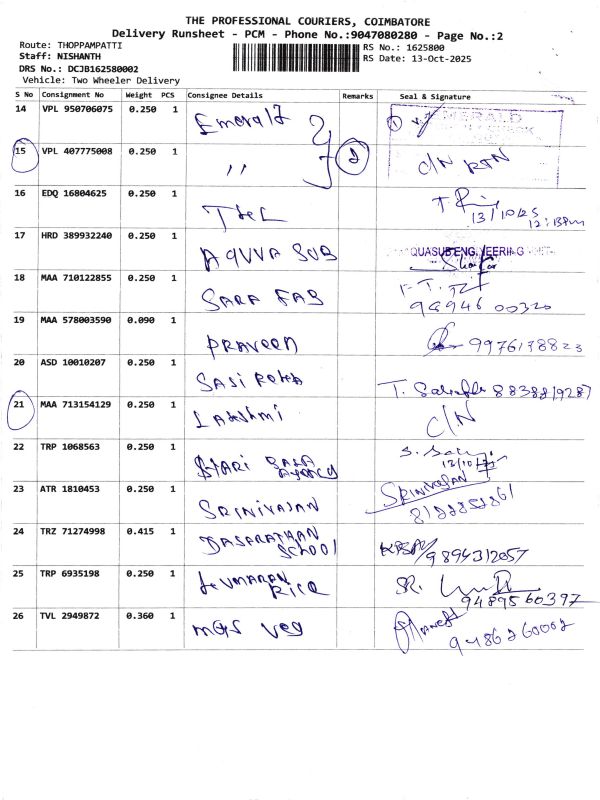 THE PROFESSIONAL COURIERS, COIMBATORE
Delivery Runsheet - PCM - Phone No.:9047080280 - Page No.:2
Route: THOPPAMPATTI
RS No.: 1625800
Staff: NISHANTH
RS Date: 13-Oct-2025
DRS No.: DCJB162580002
Vehicle: Two Wheeler Delivery
S No Consignment No Weight PCS Consignee Details Remarks Seal & Signature
14 VPL 950706075 0.250 1 Emerald 1 EMERALD
15 VPL 407775008 0.250 1 ,, 2 C/N RTN
16 EDQ 16804625 0.250 1 13/10/25
12:13pm
17 HRD 389932240 0.250 1 AQVVA SUB QUASUB ENGINEERING
18 MAA 710122855 0.250 1 SARA FAB
99946 00320
19 MAA 578003590 0.090 1 PRAVEEN 9976178823
20 ASD 10010207 0.250 1 SASI REKA T. 8838819287
21 MAA 713154129 0.250 1 LAKSHMI C/N
22 TRP 1068563 0.250 1 HARI BALA AGENCY
13/10/25
23 ATR 1810453 0.250 1 SRINIVASAN SRINIVASAN
8122852861
24 TRZ 71274998 0.415 1 DASARATHAN SCHOOL 9894312057
25 TRP 6935198 0.250 1 RICE SR.
9489560397
26 TVL 2949872 0.360 1 MGS veg
9486260002